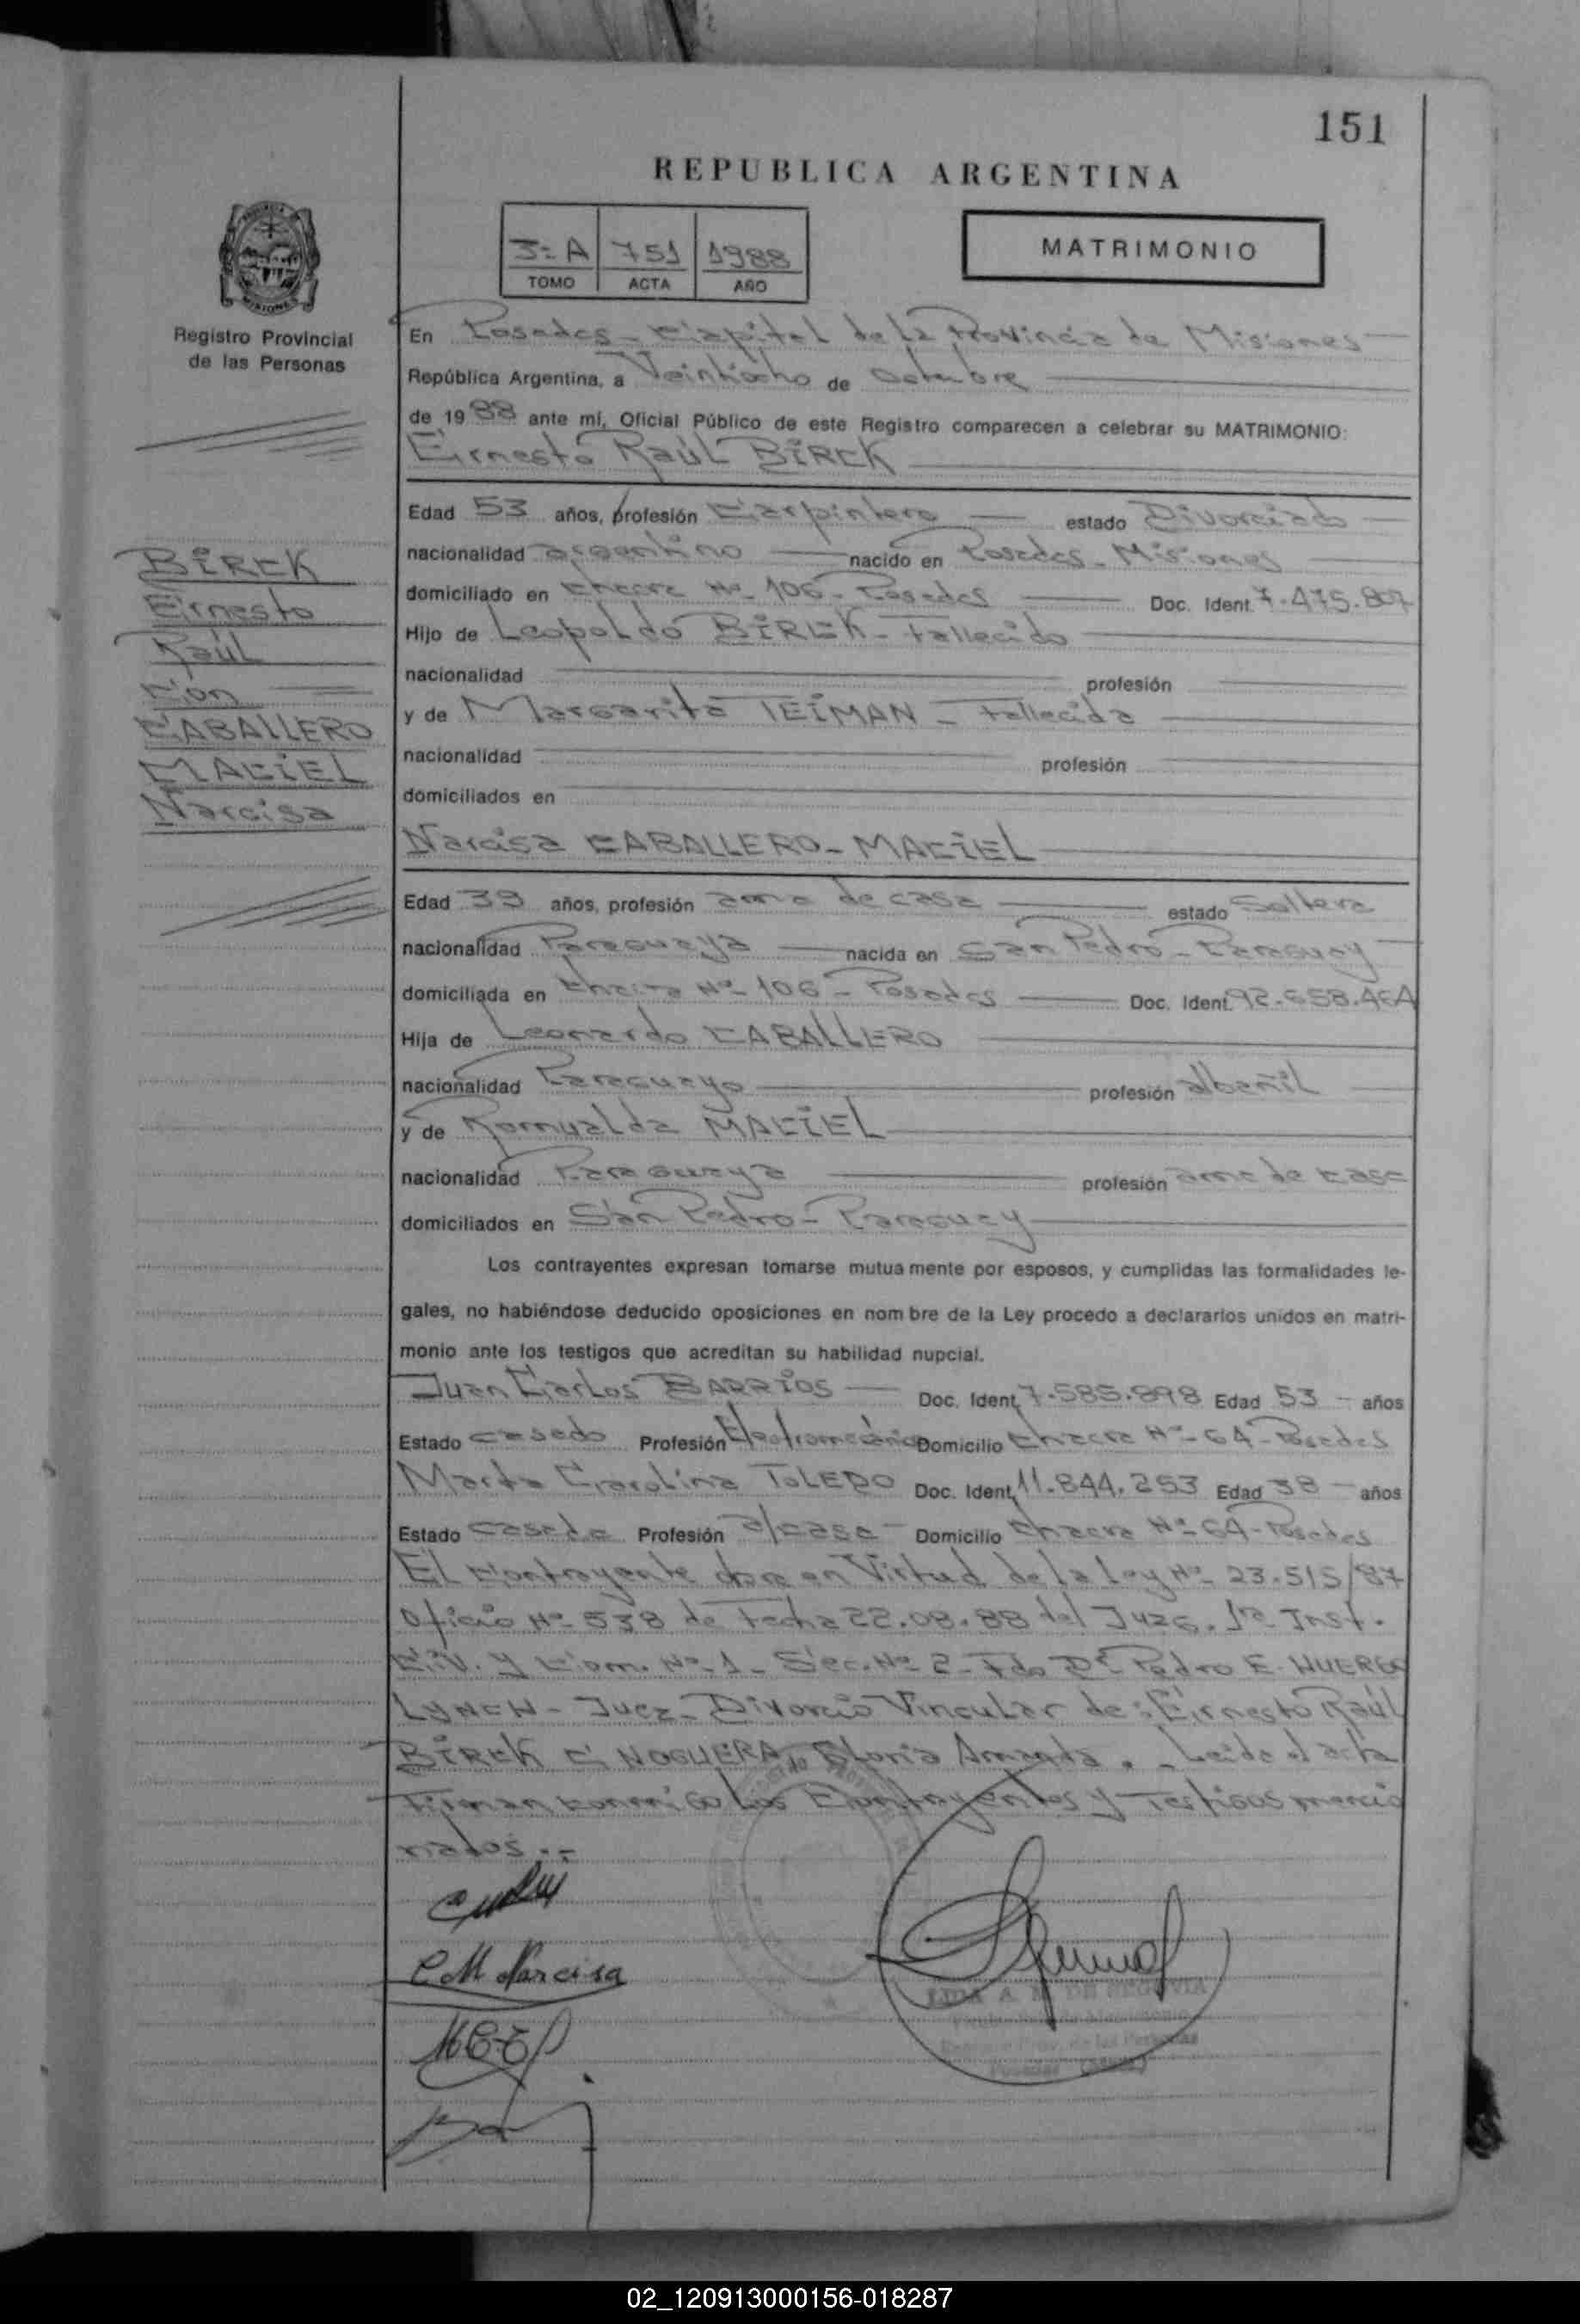 151
REPUBLICA ARGENTINA
MATRIMONIO
3º A 751 1988
TOMO ACTA AÑO
MISIONES
Registro Provincial
de las Personas
En Posadas - Capital de la Provincia de Misiones
República Argentina, a Veintiocho de Octubre
de 1988 ante mí, Oficial Público de este Registro comparecen a celebrar su MATRIMONIO:
Ernesto Raúl BIRCK
Edad 53 años, profesión Carpintero estado Divorciado
nacionalidad argentino nacido en Posadas - Misiones
domiciliado en Chacra Nº 106 - Posadas Doc. Ident. 7.475.807
Hijo de Leopoldo BIRCK - Fallecido
nacionalidad profesión
y de Margarita TEIMAN - Fallecida
nacionalidad profesión
domiciliados en
BIRCK
Ernesto
Raúl
Con
CABALLERO
MACIEL
Narcisa
Narcisa CABALLERO - MACIEL
Edad 39 años, profesión ama de casa estado Soltera
nacionalidad Paraguaya nacida en San Pedro - Paraguay
domiciliada en Chacra Nº 106 - Posadas Doc. Ident. 92.658.464
Hija de Leonardo CABALLERO
nacionalidad Paraguayo profesión albañil
y de Romualda MACIEL
nacionalidad Paraguaya profesión ama de casa
domiciliados en San Pedro - Paraguay
Los contrayentes expresan tomarse mutuamente por esposos, y cumplidas las formalidades le-
gales, no habiéndose deducido oposiciones en nombre de la Ley procedo a declararlos unidos en matri-
monio ante los testigos que acreditan su habilidad nupcial.
Juan Carlos BARRIOS Doc. Ident. 7.585.898 Edad 53 años
Estado casado Profesión Electromecánico Domicilio Chacra Nº 64 - Posadas
Marta Carolina TOLEDO Doc. Ident. 11.844.253 Edad 38 años
Estado casada Profesión a/casa Domicilio Chacra Nº 64 - Posadas
El Contrayente en Virtud de la Ley Nº 23.515/87
Oficio Nº 538 de Fecha 22.08.88 del Juzg. 1ra Inst.
Civ. y Com. Nº 1 - Sec. Nº 2 - Fdo Dr Pedro E. HUERGO
LYNCH - Juez - Divorcio Vincular de: Ernesto Raúl
BIRCK C/ NOGUERA, Gloria Amanda . - Leida el acta
Firman conmigo los Contrayentes y Testigos mencio
nados . -
C M Narcisa
M C T
LIDA A. M. DE SEGOVIA
02_120913000156-018287